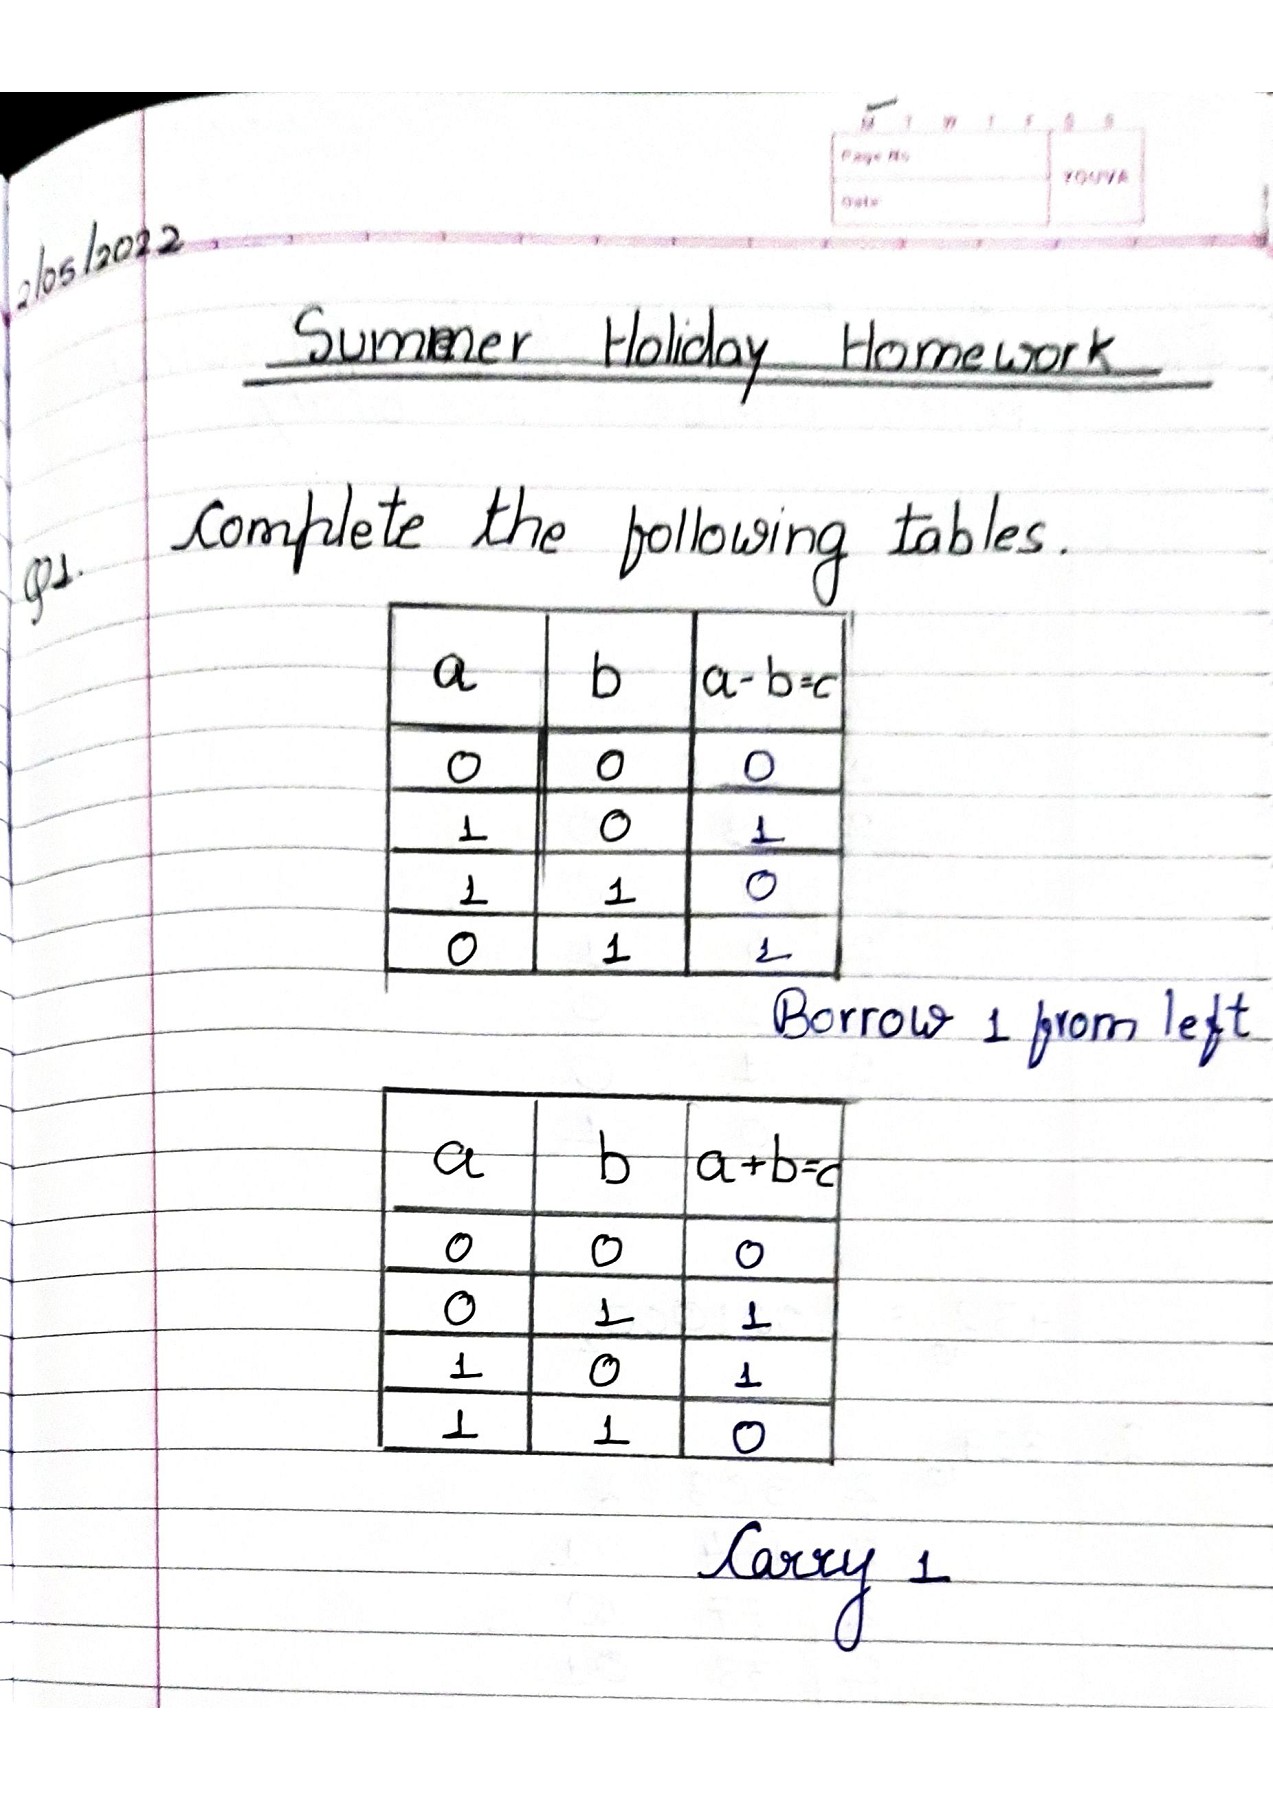 M T W T F S S
Page No
YOUVA
Date
2/05/2022
Summer Holiday Homework
Q1. Complete the following tables.
a b a-b=c
0 0 0
1 0 1
1 1 0
0 1 1
Borrow 1 from left
a b a+b=c
0 0 0
0 1 1
1 0 1
1 1 0
Carry 1